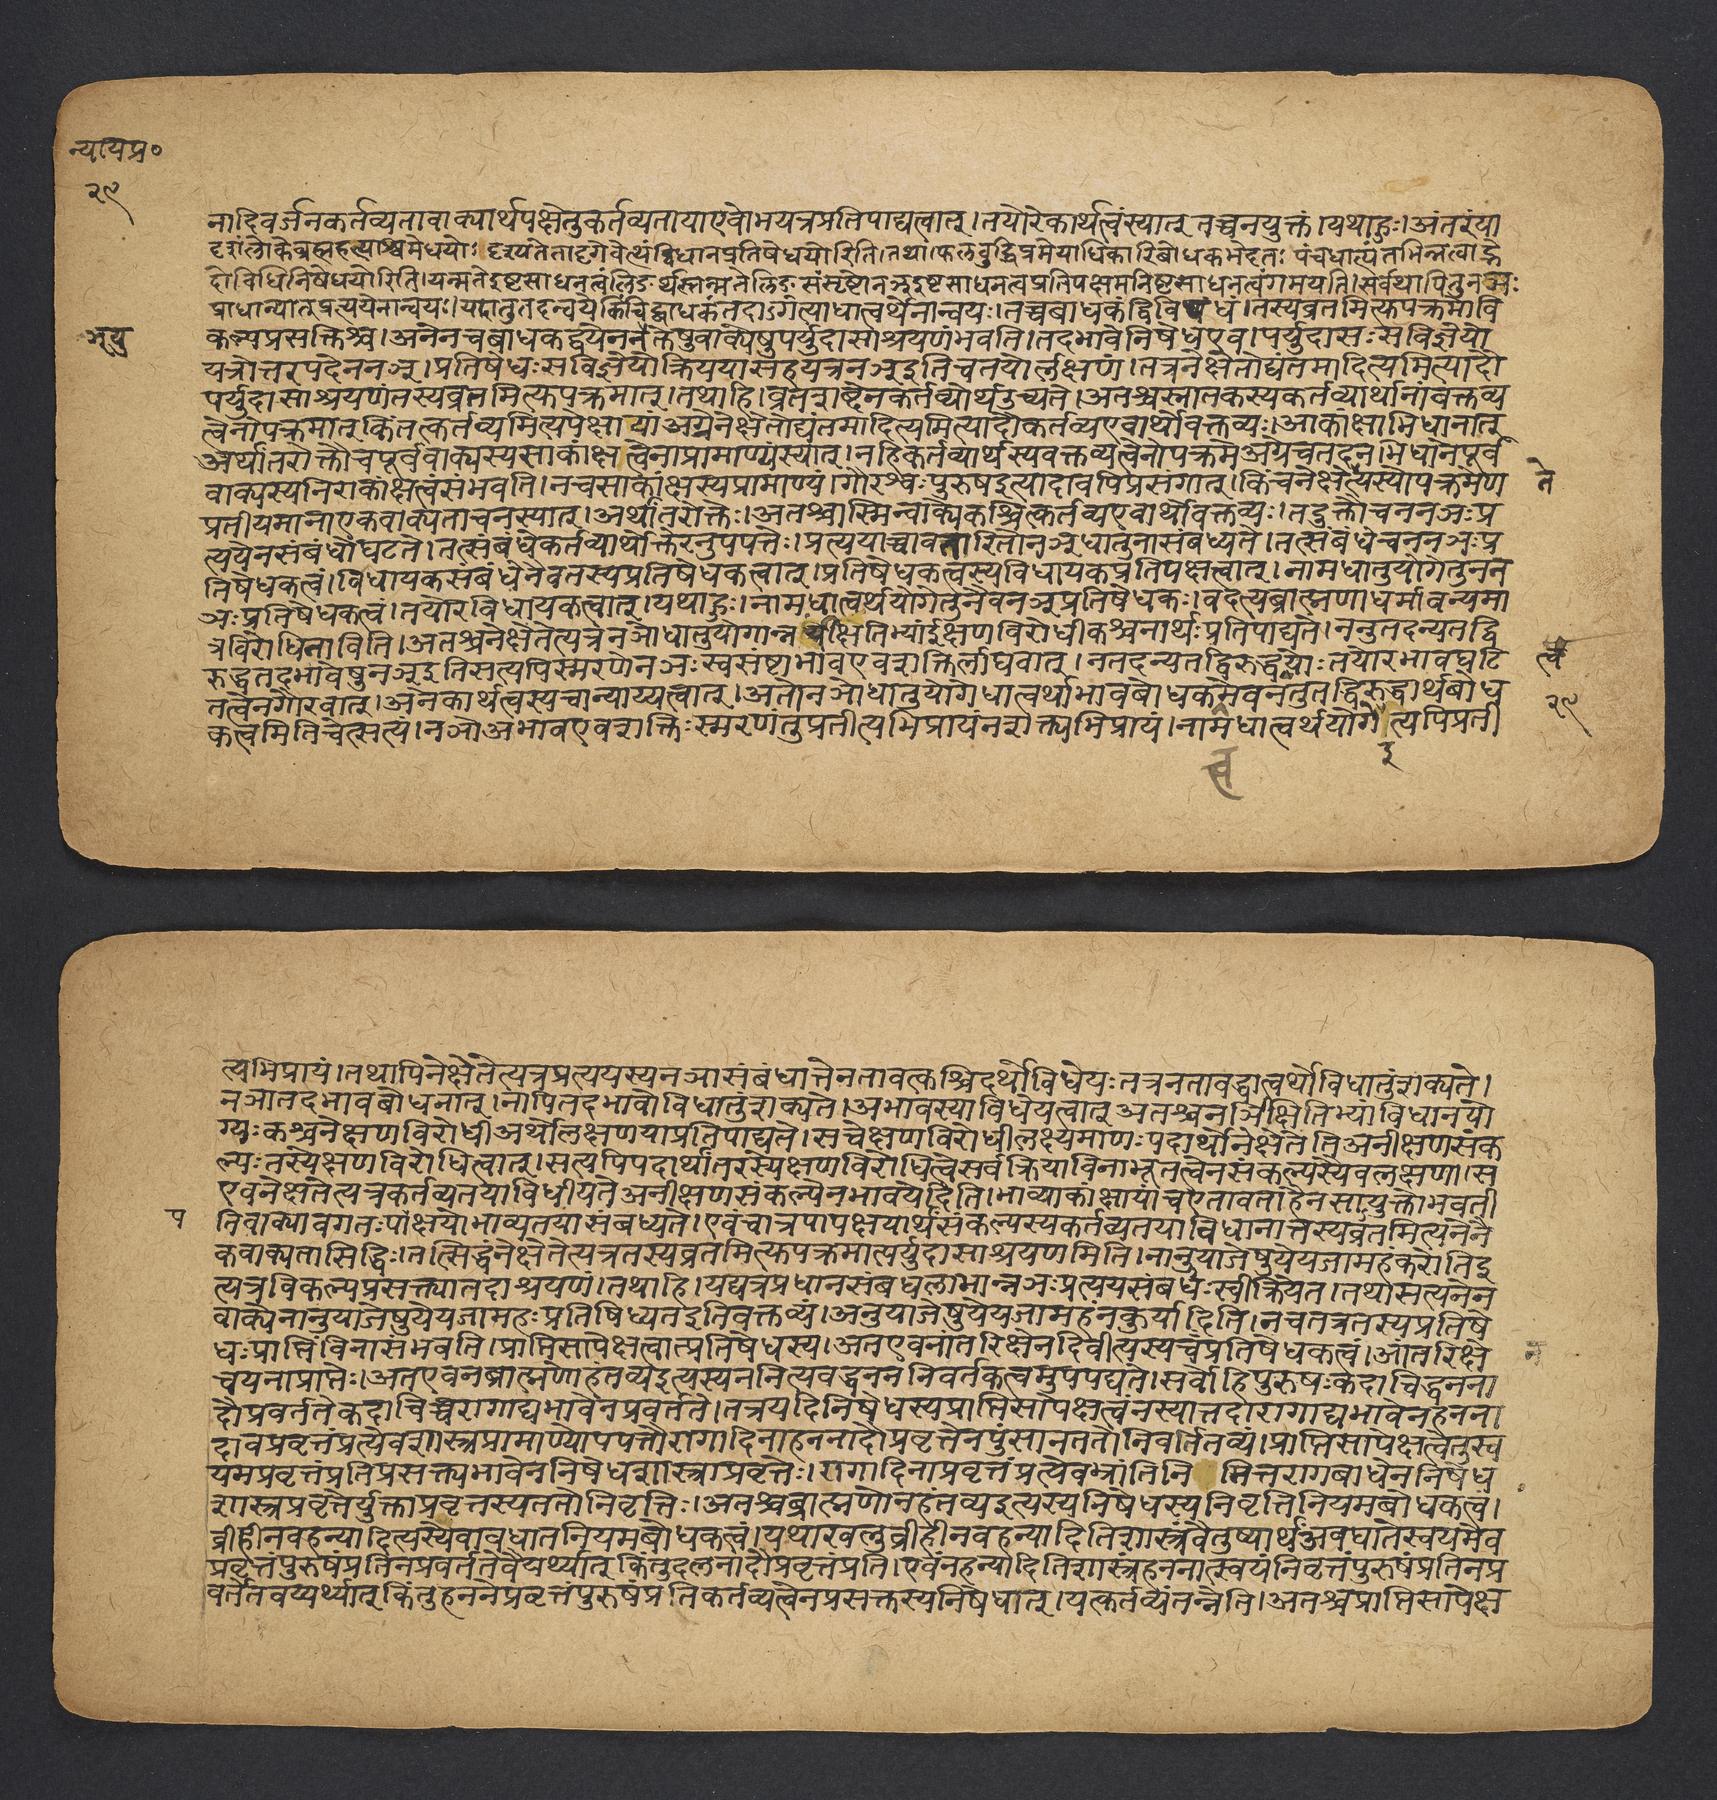 न्यायप्र०
२९
नादिवर्जनकर्तव्यतावाक्यार्थपक्षेतुकर्तव्यतायाएवोभयत्रप्रतिपाद्यत्वात्।तयोरेकार्थत्वंस्यात् तच्चनयुक्तं।यथाहुः।अंतरंया
दृशंलोकेब्रह्महत्याश्वमेधयोः दृश्यतेतादृगेवेत्थंविधानप्रतिषेधयोरिति।तथा।फलबुद्धिप्रमेयाधिकारिबोधकभेदतः पंचधात्यंतभिन्नत्वाद्भे
दोविधिनिषेधयोरिति।यन्मतेइष्टसाधनत्वंलिङर्थस्तन्मतेलिङसंसृष्टोनञइष्टसाधनत्वप्रतिपक्षमनिष्टसाधनत्वंगमयति।सर्वथापितुनञः
प्राधान्यात्प्रत्ययेनान्वयः।यदातुतदन्वयेकिंचिद्बाधकंतदाऽगत्याधात्वर्थेनान्वयः।तच्चबाधकंद्विविधं।तस्यव्रतमित्यपक्रमोवि
कल्पप्रसक्तिश्च।अनेनचबाधकद्वयेननञ्युक्तेषुवाक्येषुपर्युदासाश्रयणंभवति।तदभावेनिषेधएव।पर्युदासःसविज्ञेयो
यत्रोत्तरपदेननञ्।प्रतिषेधःसविज्ञेयोक्रिययासहयत्रनञ्इतिचतयोर्लक्षणं।तत्रनेक्षेतोद्यंतमादित्यमित्यादौ
पर्युदासाश्रयणंतस्यव्रतमित्यपक्रमात्।तथाहि।व्रतशब्देनकर्तव्योर्थउच्यते।अतश्चस्नातकस्यकर्तव्यार्थानांवक्तव्य
त्वेनोपक्रमात् किंतत्कर्तव्यमित्यपेक्षायां अग्रेनेक्षेतोद्यंतमादित्यमित्यादौकर्तव्यएवार्थोवक्तव्यः।आकांक्षाभिधानात्
अर्थांतरोक्तौचपूर्ववाक्यस्यसाकांक्षत्वेनाप्रामाण्यंस्यात्।नहिकर्तव्यार्थस्यवक्तव्यत्वेनोपक्रमेअग्रेचतदनभिधानेपूर्व
वाक्यस्यनिराकांक्षत्वंसंभवति।नचसाकांक्षस्यप्रामाण्यं।गौरश्वःपुरुषइत्यादावपिप्रसंगात्।किंचनेक्षेत्यस्योपक्रमेण
प्रतीयमानाएकवाक्यताचनस्यात्।अर्थांतरोक्तेः।अतश्चास्मिन्वाक्येकश्चित्कर्तव्यएवार्थोवक्तव्यः।तदुक्तौचननञःप्र
त्ययेनसंबंधोघटते।तत्संबंधेकर्तव्यार्थोक्तेरनुपपत्तेः।प्रत्ययाच्चावतारितोनञ्धातुनासंबध्यते।तत्संबंधेचननञःप्र
तिषेधकत्वं।विधायकसंबंधेनैवतस्यप्रतिषेधकत्वात्।प्रतिषेधकत्वस्यविधायकप्रतिपक्षत्वात्।नामधातुयोगेतुनन
ञःप्रतिषेधकत्वं।तयोरविधायकत्वात्।यथाहुः।नामधात्वर्थयोगेतुनैवनञ्प्रतिषेधकः।वदत्यब्राह्मणाधर्मावन्यमा
त्रविरोधिनाविति।अतश्चनेक्षेतेत्यत्रनञोधातुयोगान्नञीक्षतिभ्यांईक्षणविरोधीकश्चनार्थःप्रतिपाद्यते।ननुतदन्यतद्वि
रुद्धतदभावेषुनञ्इतिसत्यपिस्मरणेनञःस्वसंसृष्टाभावएवशक्तिर्लाघवात्।नतदन्यतद्विरुद्धयोःतयोरभावघटि
तत्वेनगौरवात्।अनेकार्थत्वस्यचान्याय्यत्वात्।अतोनञोधातुयोगेधात्वर्थाभावबोधकमेवनतुतद्विरुद्धार्थबोध
कत्वमितिचेत्सत्यं।नञोअभावएवशक्तिःस्मरणंतुप्रतीत्यभिप्रायंनशक्त्यभिप्रायं।नामधात्वर्थयोगेत्यपिप्रती
ञ्यु
ते
त्वे
२९
इ
त्यभिप्रायं।तथापिनेक्षेतेत्यत्रप्रत्ययस्यनञासंबंधात्तेनतावत्कश्चिदर्थोविधेयःतत्रनतावद्धात्वर्थोविधातुंशक्यते।
नञातदभावबोधनात्।नापितदभावोविधातुंशक्यते।अभावस्याविधेयत्वात् अतश्चनञीक्षितिभ्यांविधानयो
ग्यःकश्चनेक्षणविरोधीअर्थोलक्षणयाप्रतिपाद्यते।सचेक्षणविरोधीलक्ष्यमाणःपदार्थोनेक्षेतेतिअनीक्षणसंक
ल्पःतस्येक्षणविरोधित्वात्।सत्यपिपदार्थांतरस्येक्षणविरोधित्वेसर्वक्रियाविनाभूतत्वेनसंकल्पस्यैवलक्षणा।स
एवनेक्षेतेत्यत्रकर्तव्यतयाविधीयतेअनीक्षणसंकल्पेनभावयेदिति।भाव्याकांक्षायांचएतावताहैनसायुक्तोभवती
तिवाक्यावगतःपाक्षयोभाव्यतयासंबध्यते।एवंचात्रपापक्षयार्थसंकल्पस्यकर्तव्यतयाविधानात्तस्यव्रतमित्यनेनै
कवाक्यतासिद्धिः।तत्सिद्धंनेक्षेतेत्यत्रतस्यव्रतमित्यपक्रमात्पर्युदासाश्रयणमिति।नानुयाजेषुयेयजामहंकरोतिइ
त्यत्रविकल्पप्रसक्त्यातदाश्रयणं।तथाहि।यद्यत्रप्रधानसंबंधलोभान्नञःप्रत्ययसंबंधःस्वीक्रियेत।तथासत्यनेन
वाक्येनानुयाजेषुयेयजामहःप्रतिषिध्यतइतिवक्तव्यं।अनुयाजेषुयेयजामहंनकुर्यादिति।नचतत्रतस्यप्रतिषे
धःप्राप्तिंविनासंभवति।प्राप्तिसापेक्षत्वात्प्रतिषेधस्य।अतएवनांतरिक्षेनदिवीत्यस्यचप्रतिषेधकत्वं।आंतरिक्षे
चयनाप्राप्तेः।अतएवनब्राह्मणोहंतव्यइत्यस्यननित्यवद्धनननिवर्तकत्वमुपपद्यते।सर्वोहिपुरुषःकदाचिद्धनना
दौप्रवर्ततेकदाचिच्चरागाद्यभावेनप्रवर्तते।तत्रयदिनिषेधस्यप्राप्तिसापेक्षत्वंनस्यात्तदारागाद्यभावेनहनना
दावप्रवृत्तंप्रत्येवशास्त्रप्रामाण्योपपत्तौरागादिनाहननादौप्रवृत्तेनपुंसानततोनिवर्तितव्यं।प्राप्तिसापेक्षत्वेतुस्व
यमप्रवृत्तंप्रतिप्रसक्त्यभावेननिषेधशास्त्राप्रवृत्तेः।रागादिनाप्रवृत्तंप्रत्येवभ्रांतिनिमित्तरागबाधेननिषेध
शास्त्रप्रवृत्तेर्युक्ताप्रवृत्तस्यततोनिवृत्तिः।अतश्चब्राह्मणोनहंतव्यइत्यस्यनिषेधस्यनिवृत्तिनियमबोधकत्वं।
व्रीहीनवहन्यादित्यस्येवावधातनियमबोधकत्वं।यथाखलुव्रीहीनवहन्यादितिशास्त्रंवैतुष्यार्थंअवघातेस्वयमेव
प्रवृत्तंपुरुषंप्रतिनप्रवर्ततेवैयर्थ्यात् किंतुदलनादौप्रवृत्तंप्रति।एवंनहन्यादितिशास्त्रंहननात्स्वयंनिवृत्तंपुरुषंप्रतिनप्र
वर्ततेवय्यर्थ्यात् किंतुहननेप्रवृत्तंपुरुषंप्रतिकर्तव्यत्वेनप्रसक्तस्यनिषेधात्।यत्कर्तव्यंतन्नेति।अतश्चप्राप्तिसापेक्ष
प
न